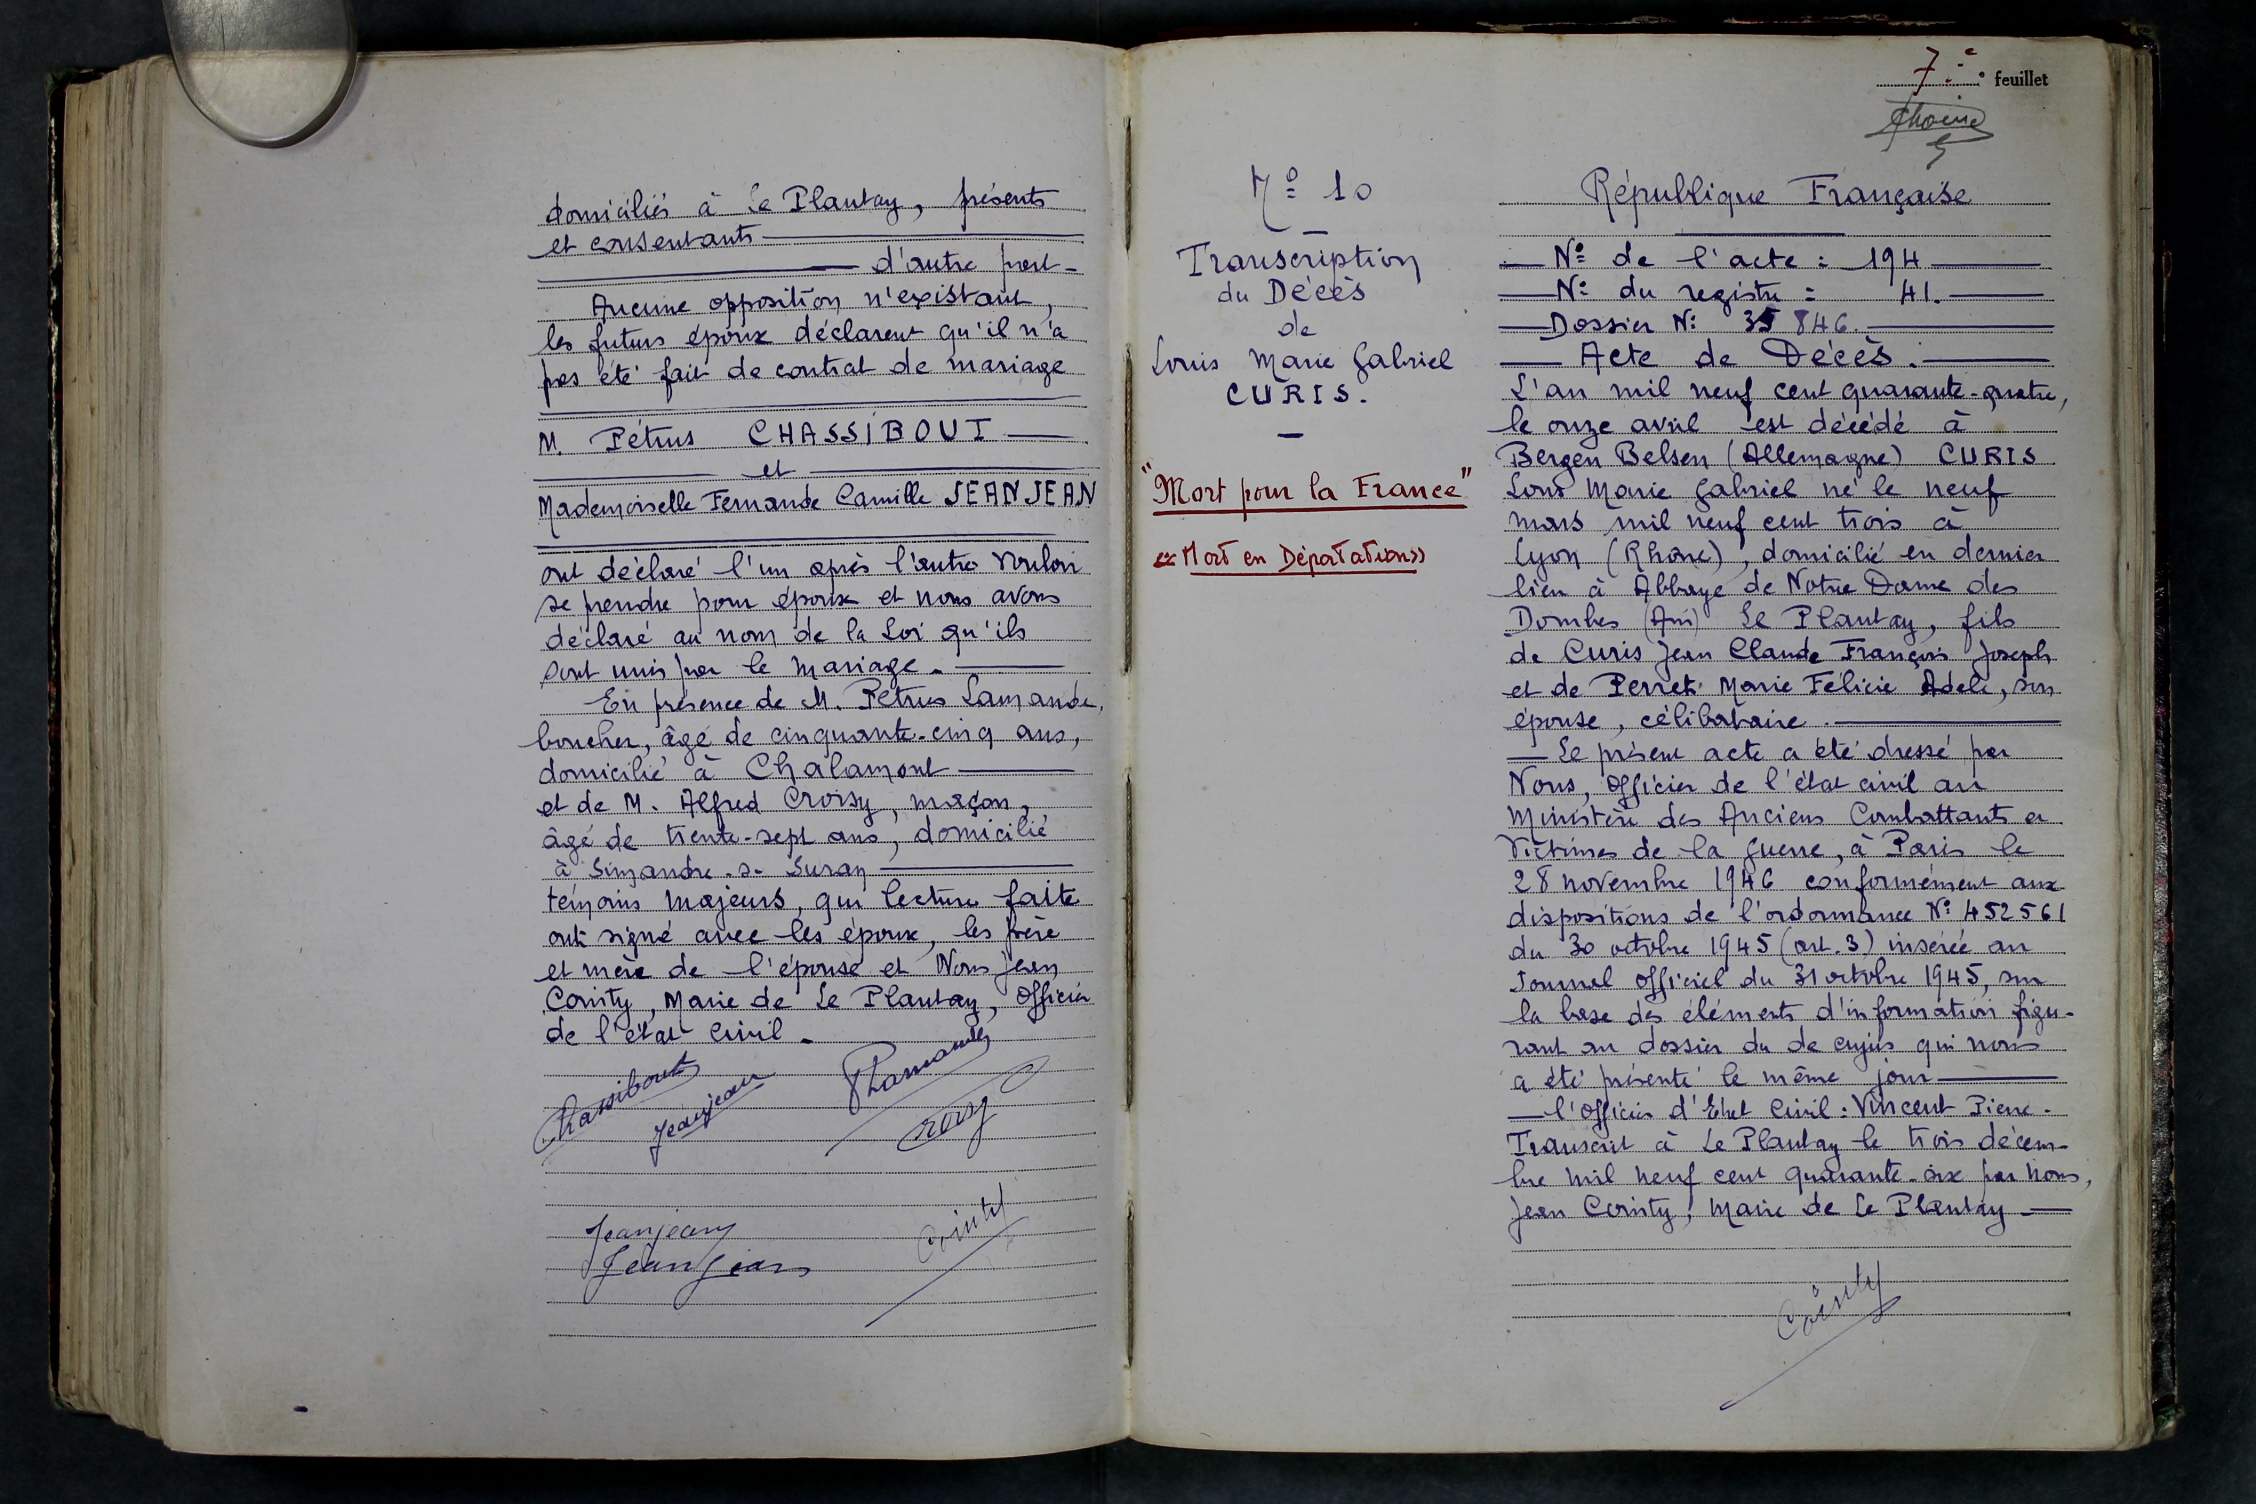 domiciliés à Le Plantay, présents
et consentants
d'autre part-
Aucune opposition n'existant,
les futurs époux déclarent qu'il n'a
pas été fait de contrat de mariage
M. Pétrus CHASSIBOUT
et
Mademoiselle Fernande Camille JEANJEAN
ont déclaré l'un après l'autre vouloir
se prendre pour époux et nous avons
déclaré au nom de la Loi qu'ils
sont unis par le mariage.
En présence de M. Pétrus Lamande,
boucher, âgé de cinquante-cinq ans,
domicilié à Chalamont
et de M. Alfred Croisy, maçon,
âgé de trente-sept ans, domicilié
à Simandre-s-Suran
témoins majeurs, qui lecture faite
ont signé avec les époux, les père
et mère de l'épouse et Nous Jean
Cointy, Maire de Le Plantay, Officier
de l'état civil.
Chassibout
Jeanjean
PLamande
Croisy
Jeanjean
Jeanjean
Cointy
7e feuillet
No 10
Transcription
du Décès
de
Louis Marie Gabriel
CURIS.
"Mort pour la France"
« Mort en Déportation »
République Française
No de l'acte : 194
No du registre : 41.
Dossier No 35 846.
Acte de Décès.
L'an mil neuf cent quarante-quatre,
le onze avril est décédé à
Bergen Belsen (Allemagne) CURIS
Louis Marie Gabriel né le neuf
mars mil neuf cent trois à
Lyon (Rhône), domicilié en dernier
lieu à Abbaye de Notre Dame des
Dombes (Ain) Le Plantay, fils
de Curis Jean Claude François Joseph
et de Perret Marie Félicie Adèle, son
épouse, célibataire.
Le présent acte a été dressé par
Nous, Officier de l'état civil au
Ministère des Anciens Combattants et
Victimes de la guerre, à Paris le
28 novembre 1946 conformément aux
dispositions de l'ordonnance No 452561
du 30 octobre 1945 (art. 3) insérée au
Journal Officiel du 31 octobre 1945, sur
la base des éléments d'information figu-
rant au dossier du de cujus qui nous
a été présenté le même jour
l'Officier d'Etat Civil : Vincent Pierre.
Transcrit à Le Plantay le trois décem-
bre mil neuf cent quarante-six par nous,
Jean Cointy, Maire de Le Plantay
Cointy